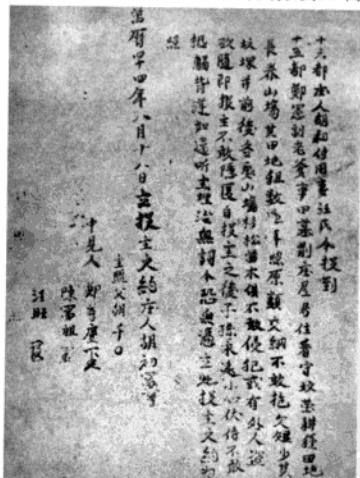 十六都庄人胡初仔同妻汪氏今投到
十五都鄭憲副老爹事田墓前庄屋居住看守坟茔耕種田地
長養山場其田地租数遞年照原額交納不敢拖欠短少其
坟塋并前後各處山場杉松苗木俱不敢侵犯或有外人盜
砍隨即报主不敢隱匿自投主之後子孫永遠小心伏侍不敢
抵觸背逆如違听主理治無詞今恐無憑立此投主文約為
照
萬曆四十四年八月十八日立投主文約庄人胡初
主照父胡千
中見人 鄭
陳富祖
汪旺